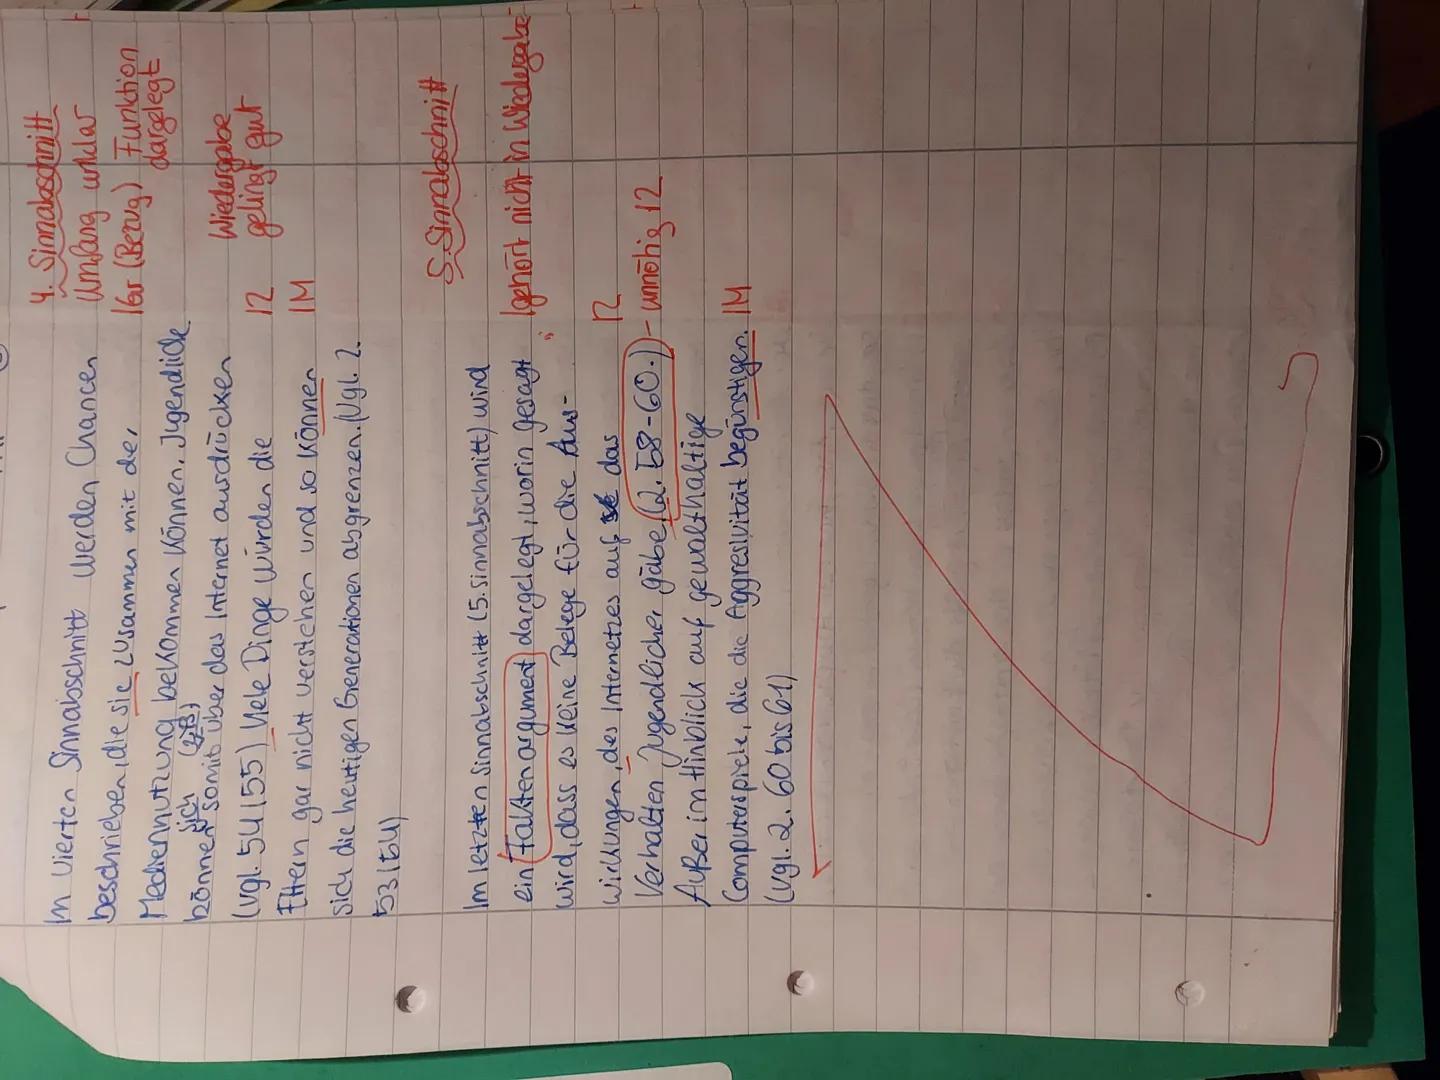 Im vierten Sinnabschnitt werden Chancen
beschrieben, die sie zusammen mit der
Mediennutzung bekommen können. Jugendliche
sich (z.B)
können somit über das Internet ausdrücken
(vgl. 54 155) Viele Dinge würden die
Eltern gar nicht verstehen und so können
sich die heutigen Generationen abgrenzen. (Vgl. Z.
53 154)
4. Sinnabschnitt
Umfang unklar
1Gr (Bezug) Funktion
dargelegt
Wiedergabe
1Z gelingt gut
1M
Im letzten Sinnabschnitt (5. Sinnabschnitt) wird
ein Faktenargument dargelegt, worin gesagt
wird, dass es keine Belege für die Aus-
wirkungen, des Internetzes auf das
Verhalten Jugendlicher gäbe. (Z. 58-60.)
Außer im Hinblick auf gewalthaltige
Computerspiele, die die Aggresivität begünstigen.
(vgl. Z. 60 bis 61)
5. Sinnabschnitt
gehört nicht in Wiedergabe
1Z
- unnötig 1Z
1M